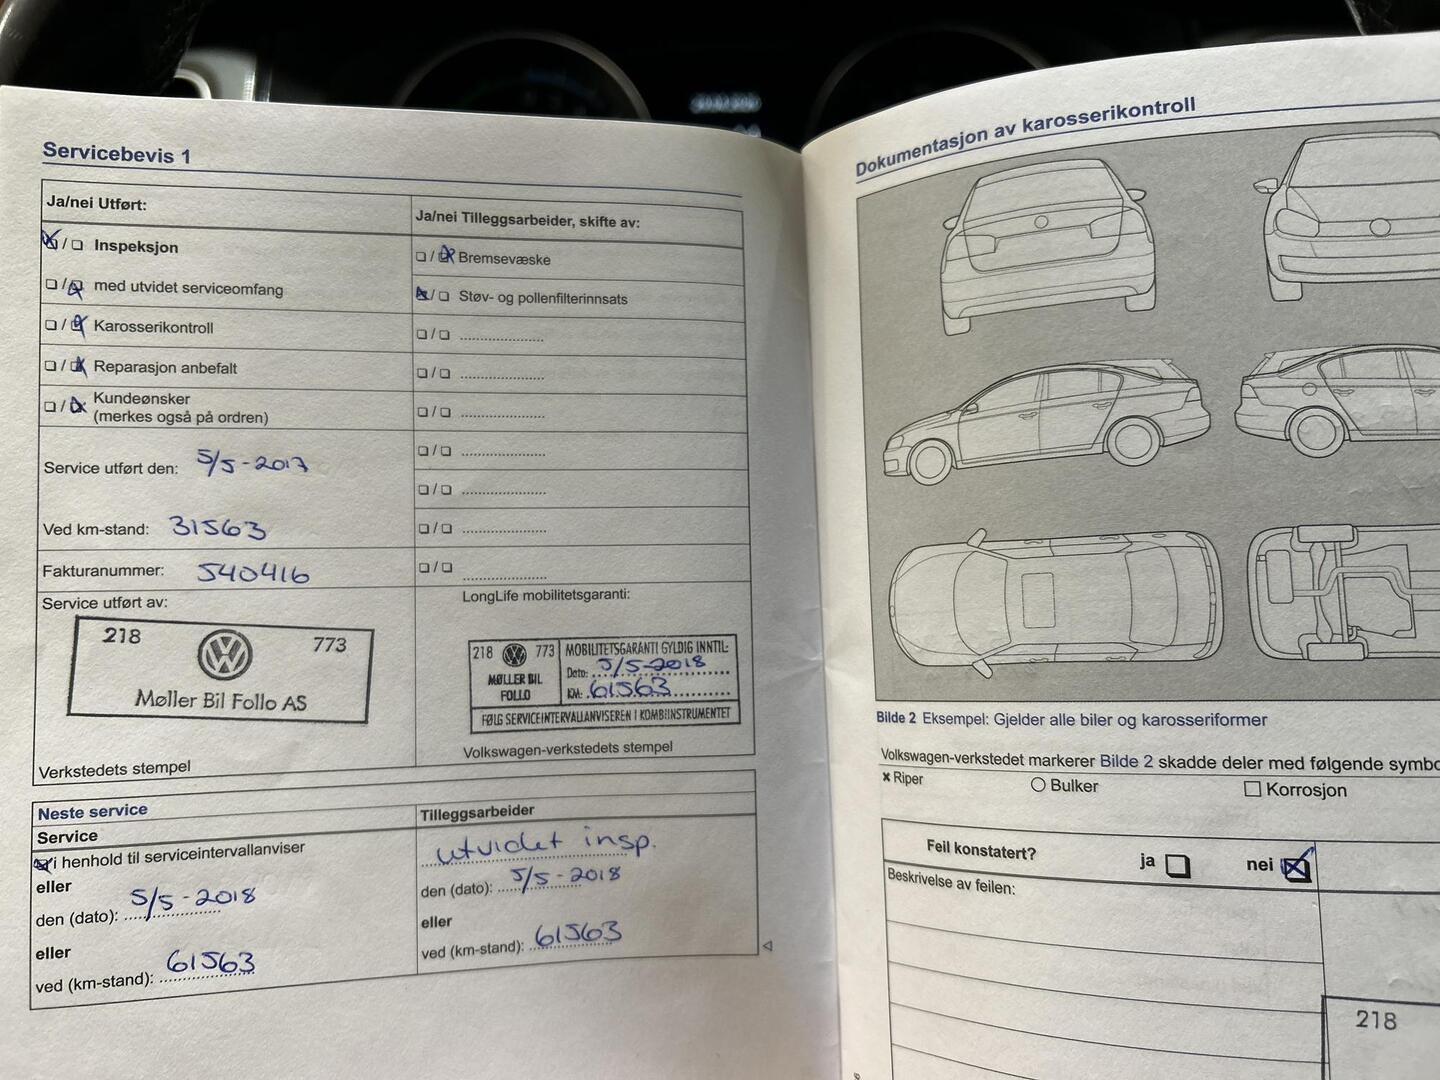 Servicebevis 1
Ja/nei Utført:
☒ / ☐ Inspeksjon
☐ / ☒ med utvidet serviceomfang
☐ / ☒ Karosserikontroll
☐ / ☒ Reparasjon anbefalt
☐ / ☒ Kundeønsker
(merkes også på ordren)
Service utført den: 5/5-2017
Ved km-stand: 31563
Fakturanummer: 540416
Service utført av:
218 773
Møller Bil Follo AS
Verkstedets stempel
Ja/nei Tilleggsarbeider, skifte av:
☐ / ☒ Bremsevæske
☒ / ☐ Støv- og pollenfilterinnsats
☐ / ☐ ....................
☐ / ☐ ....................
☐ / ☐ ....................
☐ / ☐ ....................
☐ / ☐ ....................
☐ / ☐ ....................
☐ / ☐ ....................
LongLife mobilitetsgaranti:
218 773
MØLLER BIL
FOLLO
MOBILITETSGARANTI GYLDIG INNTIL:
Dato: 5/5-2018
KM: 61563
FØLG SERVICEINTERVALLANVISEREN I KOMBIINSTRUMENTET
Volkswagen-verkstedets stempel
Neste service
Service
☒ i henhold til serviceintervallanviser
eller
den (dato): 5/5-2018
eller
ved (km-stand): 61563
Tilleggsarbeider
utvidet insp.
den (dato): 5/5-2018
eller
ved (km-stand): 61563
Dokumentasjon av karosserikontroll
Bilde 2 Eksempel: Gjelder alle biler og karosseriformer
Volkswagen-verkstedet markerer Bilde 2 skadde deler med følgende symbo
× Riper ○ Bulker ☐ Korrosjon
Feil konstatert? ja ☐ nei ☒
Beskrivelse av feilen:
218